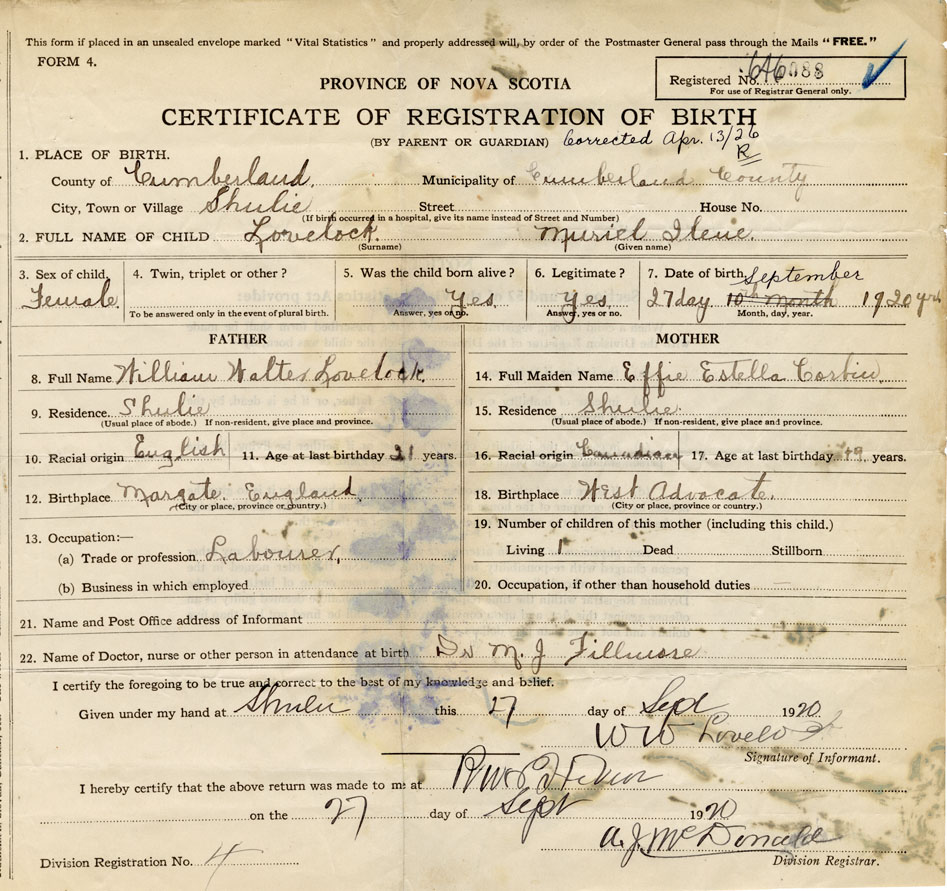 This form if placed in an unsealed envelope marked "Vital Statistics" and properly addressed will, by order of the Postmaster General pass through the Mails "FREE."
FORM 4.
Registered No. 646088
For use of Registrar General only.
PROVINCE OF NOVA SCOTIA
CERTIFICATE OF REGISTRATION OF BIRTH
(BY PARENT OR GUARDIAN) Corrected Apr. 13/26
R
1. PLACE OF BIRTH.
County of Cumberland. Municipality of Cumberland County
City, Town or Village Shulie Street House No.
(If birth occurred in a hospital, give its name instead of Street and Number)
2. FULL NAME OF CHILD Lovelock. Muriel Ilene.
(Surname) (Given name)
3. Sex of child. 4. Twin, triplet or other? 5. Was the child born alive? 6. Legitimate? 7. Date of birth September
Female Yes Yes 27 day 10th month 1920 yr
To be answered only in the event of plural birth. Answer, yes or no. Answer, yes or no. Month, day, year.
FATHER MOTHER
8. Full Name William Walter Lovelock. 14. Full Maiden Name Effie Estella
9. Residence. Shulie 15. Residence Shulie.
(Usual place of abode.) If non-resident, give place and province. (Usual place of abode.) If non-resident, give place and province.
10. Racial origin English 11. Age at last birthday 21 years. 16. Racial origin Canadian 17. Age at last birthday years.
12. Birthplace Margate. England. 18. Birthplace West Advocate.
(City or place, province or country.) (City or place, province or country.)
13. Occupation:— 19. Number of children of this mother (including this child.)
(a) Trade or profession Labourer, Living 1 Dead Stillborn
(b) Business in which employed 20. Occupation, if other than household duties
21. Name and Post Office address of Informant
22. Name of Doctor, nurse or other person in attendance at birth Dr M. J. Fillmore
I certify the foregoing to be true and correct to the best of my knowledge and belief.
Given under my hand at Shulie this 27 day of Sept 1920
W W Lovelock
Signature of Informant.
I hereby certify that the above return was made to me at
on the 27 day of Sept 1920
A. J. McDonald
Division Registration No. 4 Division Registrar.